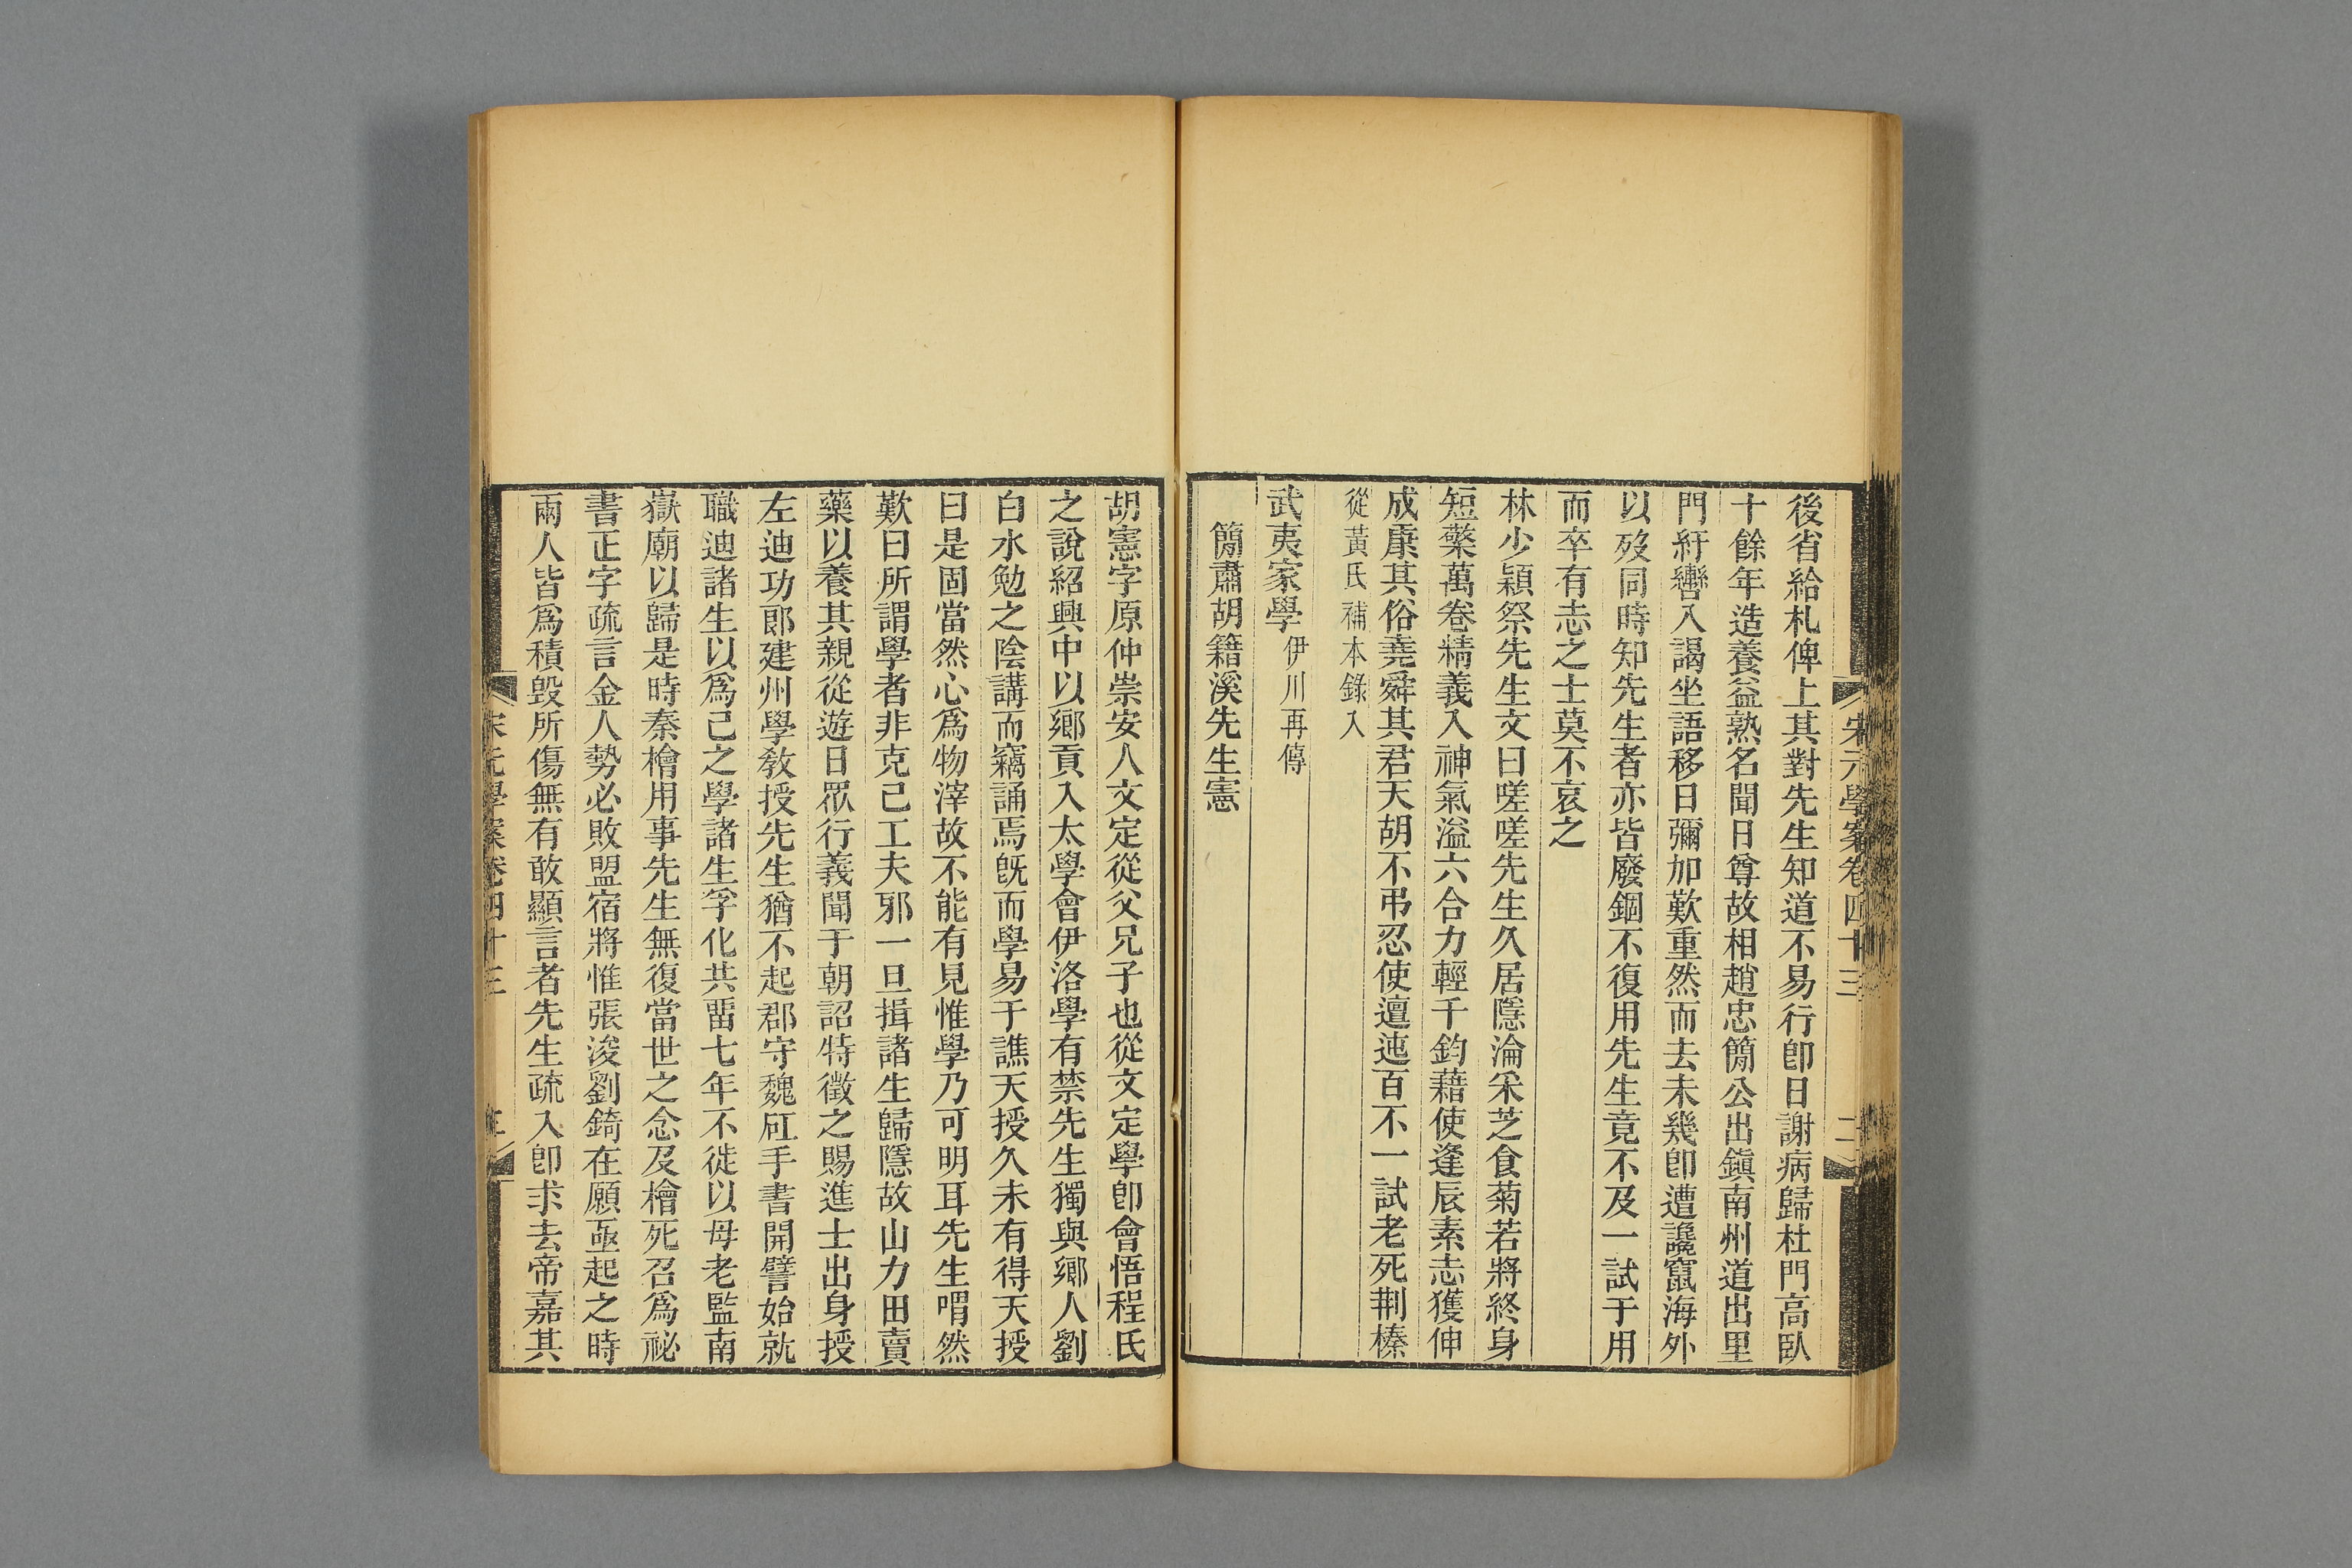 宋元學案卷四十三 二
後省給札俾上其對先生知道不易行卽日謝病歸杜門高臥
十餘年造養益熟名聞日尊故相趙忠簡公出鎮南州道出里
門紆轡入謁坐語移日彌加歎重然而去未幾卽遭讒竄海外
以歿同時知先生者亦皆廢錮不復用先生竟不及一試于用
而卒有志之士莫不哀之
林少穎祭先生文曰嗟嗟先生久居隱淪采芝食菊若將終身
短檠萬卷精義入神氣溢六合力輕千鈞藉使逢辰素志獲伸
成康其俗堯舜其君天胡不弔忍使邅迍百不一試老死荆榛
從黃氏補本錄入
武夷家學伊川再傳
簡肅胡籍溪先生憲
胡憲字原仲崇安人文定從父兄子也從文定學卽會悟程氏
之說紹興中以鄉貢入太學會伊洛學有禁先生獨與鄉人劉
白水勉之陰講而竊誦焉旣而學易于譙天授久未有得天授
曰是固當然心爲物滓故不能有見惟學乃可明耳先生喟然
歎曰所謂學者非克己工夫邪一旦揖諸生歸隱故山力田賣
藥以養其親從遊日眾行義聞于朝詔特徵之賜進士出身授
左迪功郎建州學敎授先生猶不起郡守魏矼手書開譬始就
職迪諸生以爲己之學諸生孚化共畱七年不徙以母老監南
嶽廟以歸是時秦檜用事先生無復當世之念及檜死召爲祕
書正字疏言金人勢必敗盟宿將惟張浚劉錡在願亟起之時
兩人皆爲積毀所傷無有敢顯言者先生疏入卽求去帝嘉其
宋元學案卷四十三 三